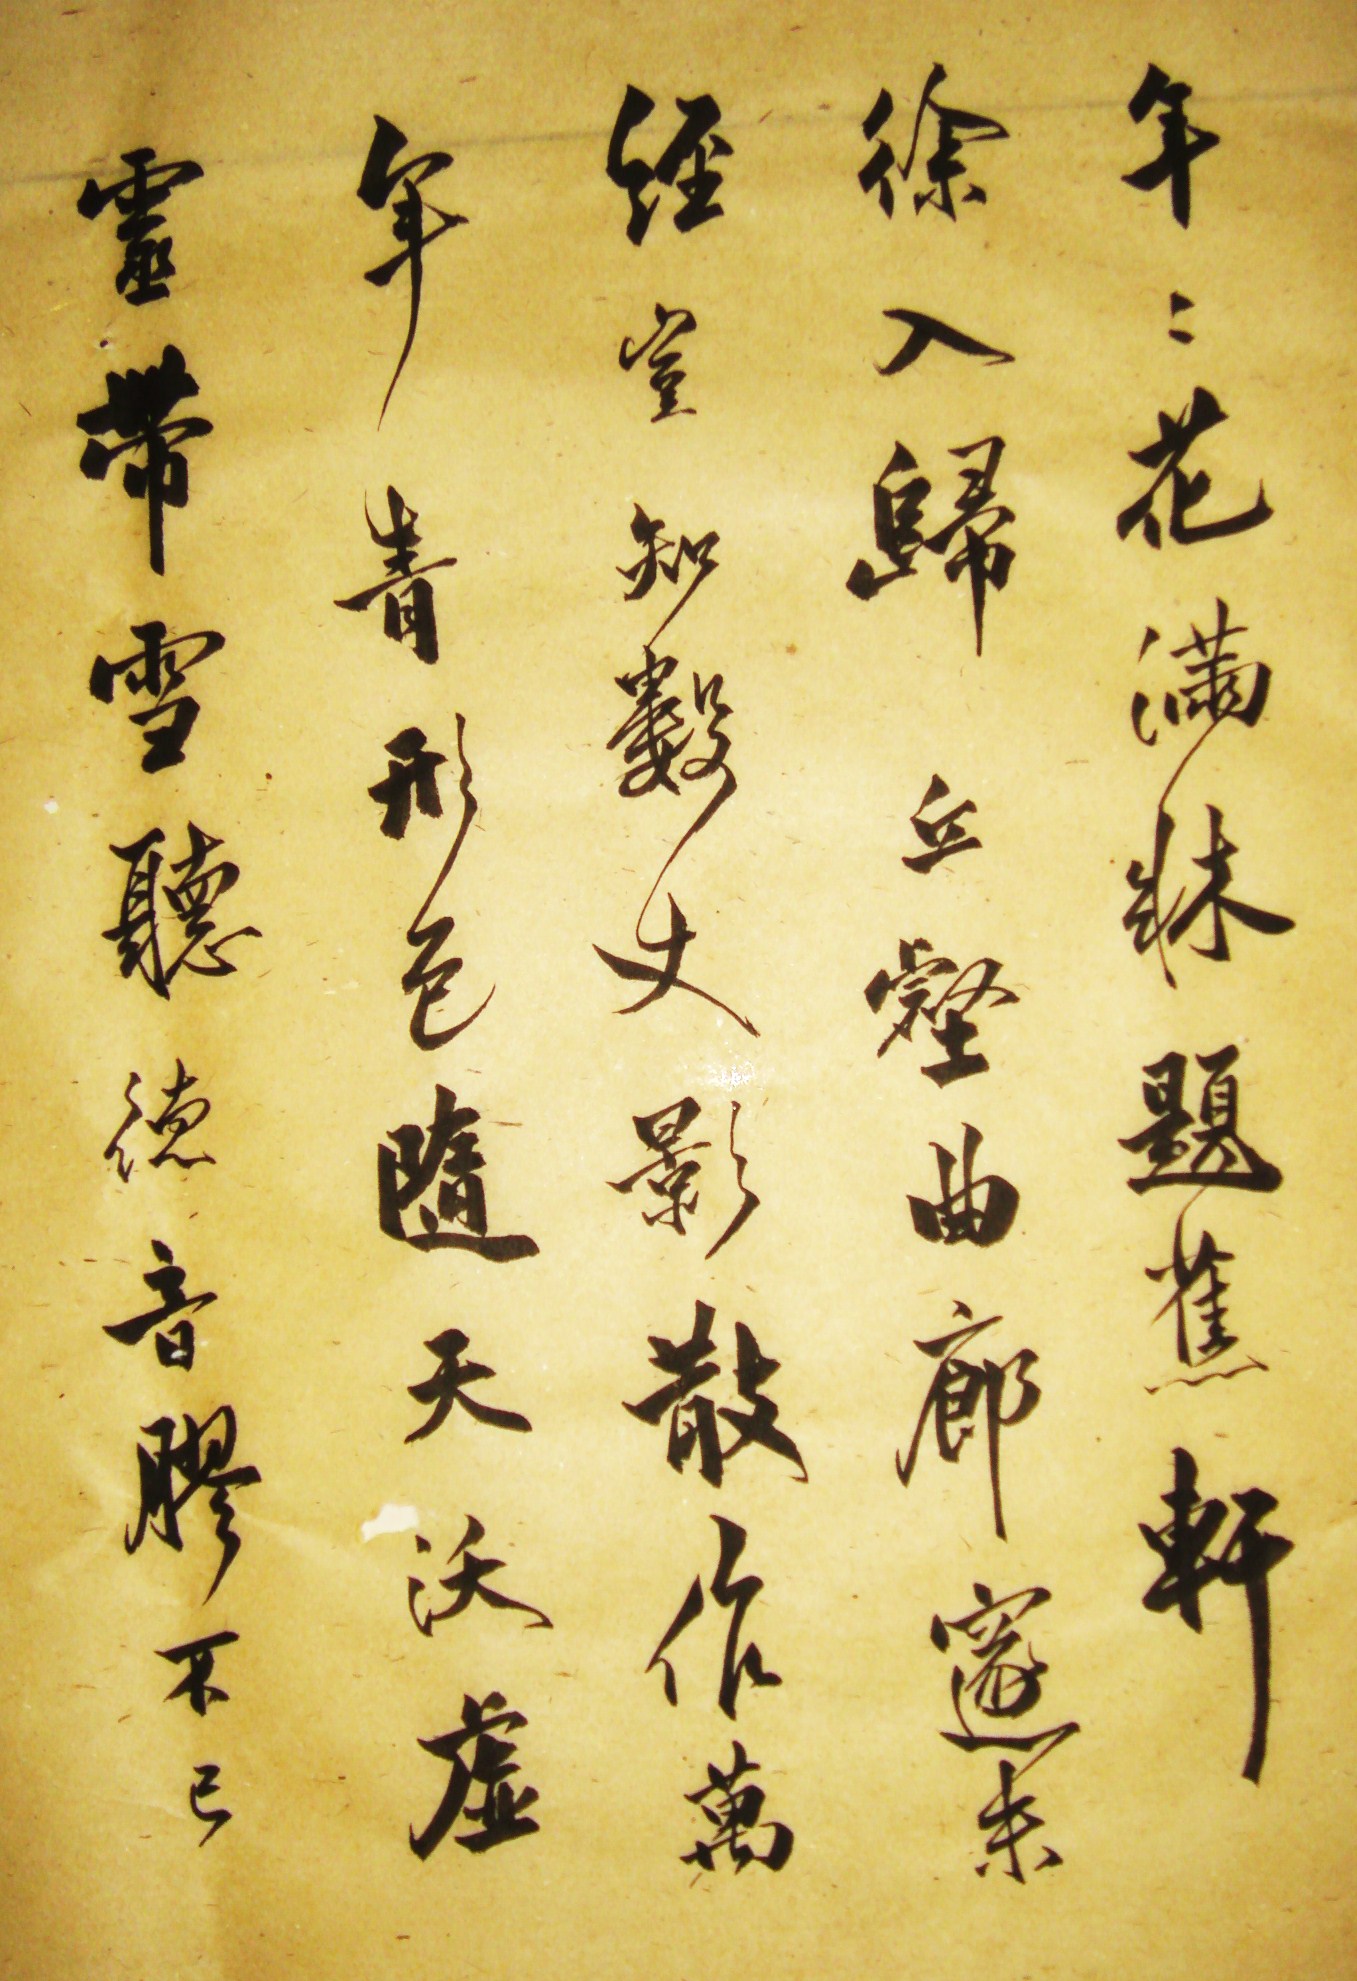 年〻花滿牀題蕉軒
徐入歸丘壑曲廊邃未
經豈知數丈影散作萬
年青形色隨天沃虛
靈帶雪聽德音膠不已